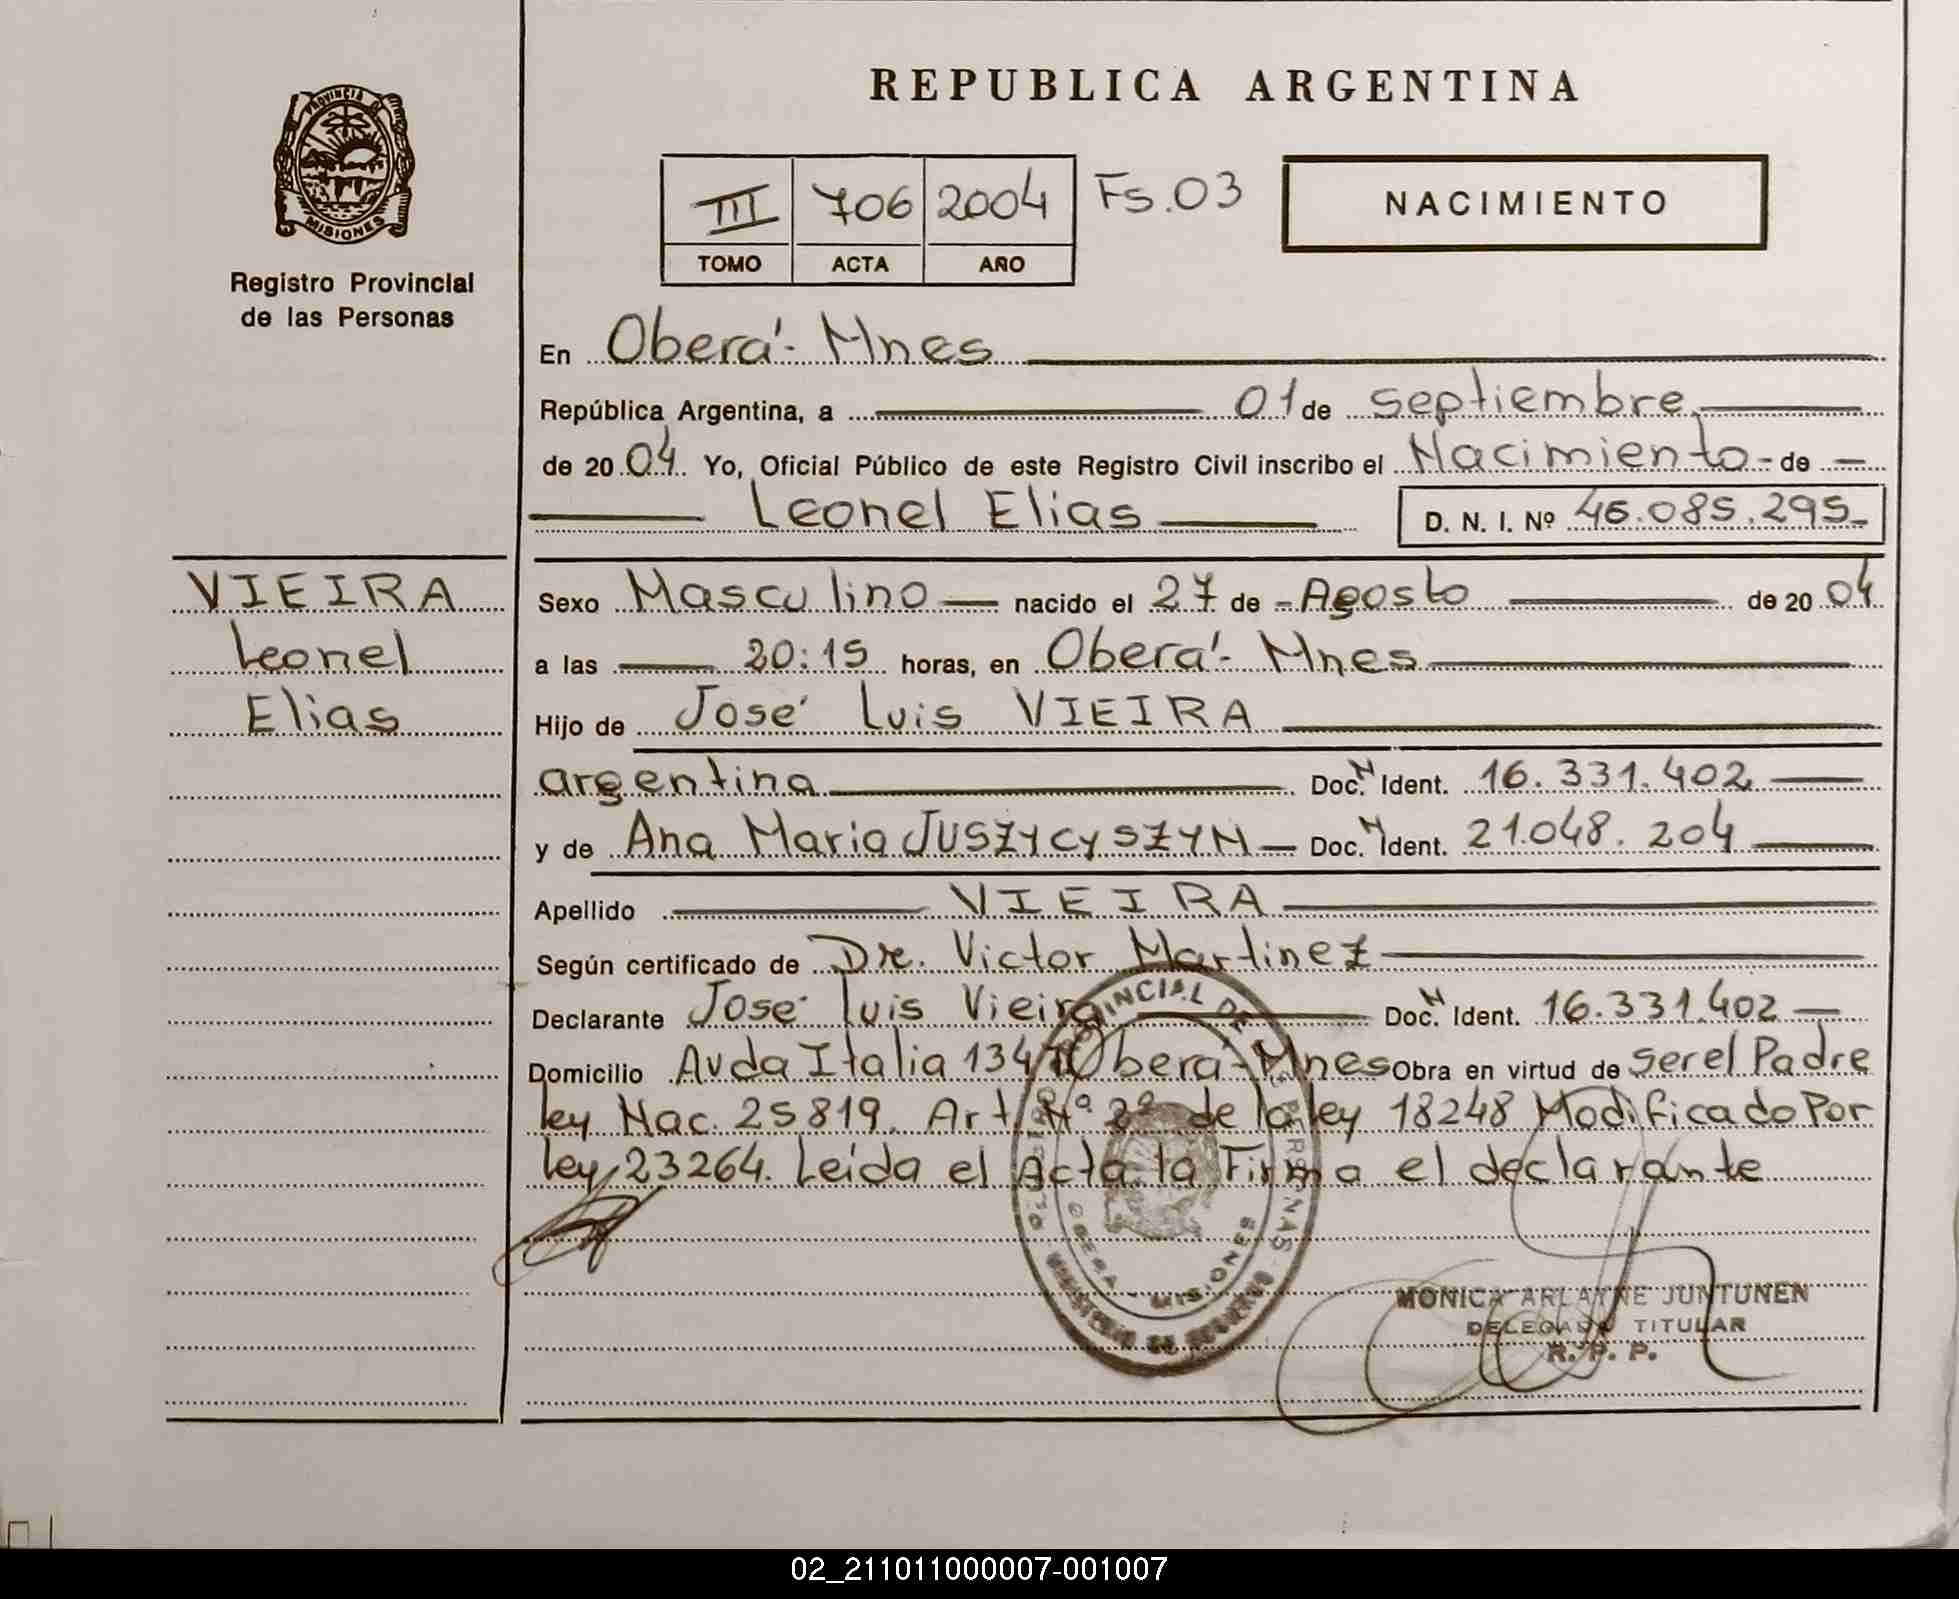 REPUBLICA ARGENTINA
PROVINCIA DE
MISIONES
Registro Provincial
de las Personas
III 706 2004 Fs.03
TOMO ACTA AÑO
NACIMIENTO
En Oberá - Mnes
República Argentina, a 01 de septiembre
de 20 04. Yo, Oficial Público de este Registro Civil inscribo el Nacimiento - de
Leonel Elias D. N. I. Nº 46.085.295
VIEIRA
Leonel
Elias
Sexo Masculino nacido el 27 de Agosto de 20 04
a las 20:15 horas, en Oberá - Mnes
Hijo de José Luis VIEIRA
argentina Doc. N Ident. 16.331.402
y de Ana Maria JUSZYCYSZYN Doc. N Ident. 21.048.204
Apellido VIEIRA
Según certificado de Dre. Victor Martinez
Declarante José Luis Vieira Doc. N Ident. 16.331.402
Domicilio Avda Italia Oberá - Mnes Obra en virtud de ser el Padre
ley Nac. 25819. Art Nº 2º de la ley 18248 Modificado Por
ley 23264. Leida el Acta la Firma el declarante
OBERA - MISIONES
MINISTERIO DE GOBIERNO
MONICA ARLAYNE JUNTUNEN
DELEGADA TITULAR
R. P. P.
02_211011000007-001007